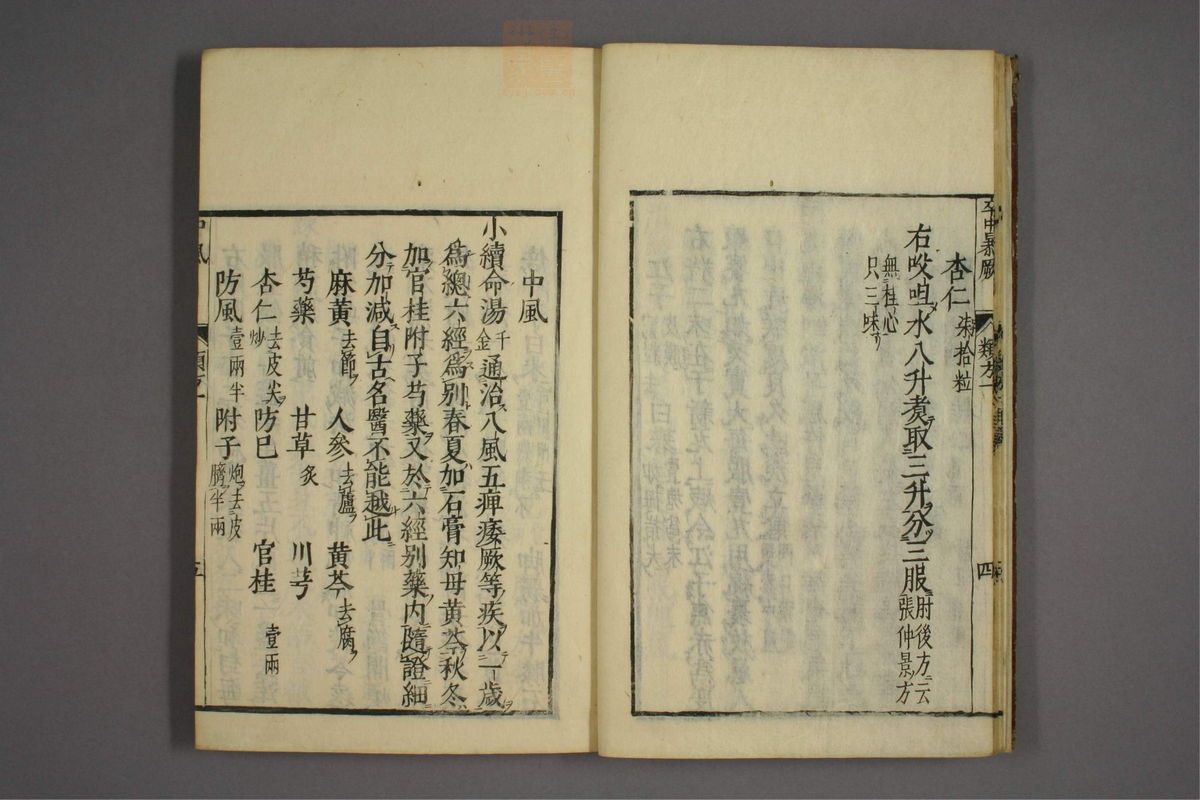 卒中暴厥
類方一
四
杏仁 柒拾粒
右㕮咀水八升煮取三升分三服 肘後方云張仲景方
無桂心只三味
中風
小續命湯 千金 通治八風五痺痿厥等疾以一歲
爲總六經爲別春夏加石膏知母黃芩秋冬
加官桂附子芍藥又於六經別藥內隨證細
分加減自古名醫不能越此
麻黃 去節 人參 去蘆 黃芩 去腐
芍藥 甘草 炙 川芎
杏仁 去皮尖炒 防已 官桂 壹兩
防風 壹兩半 附子 炮去皮臍半兩
中風
類方一
五